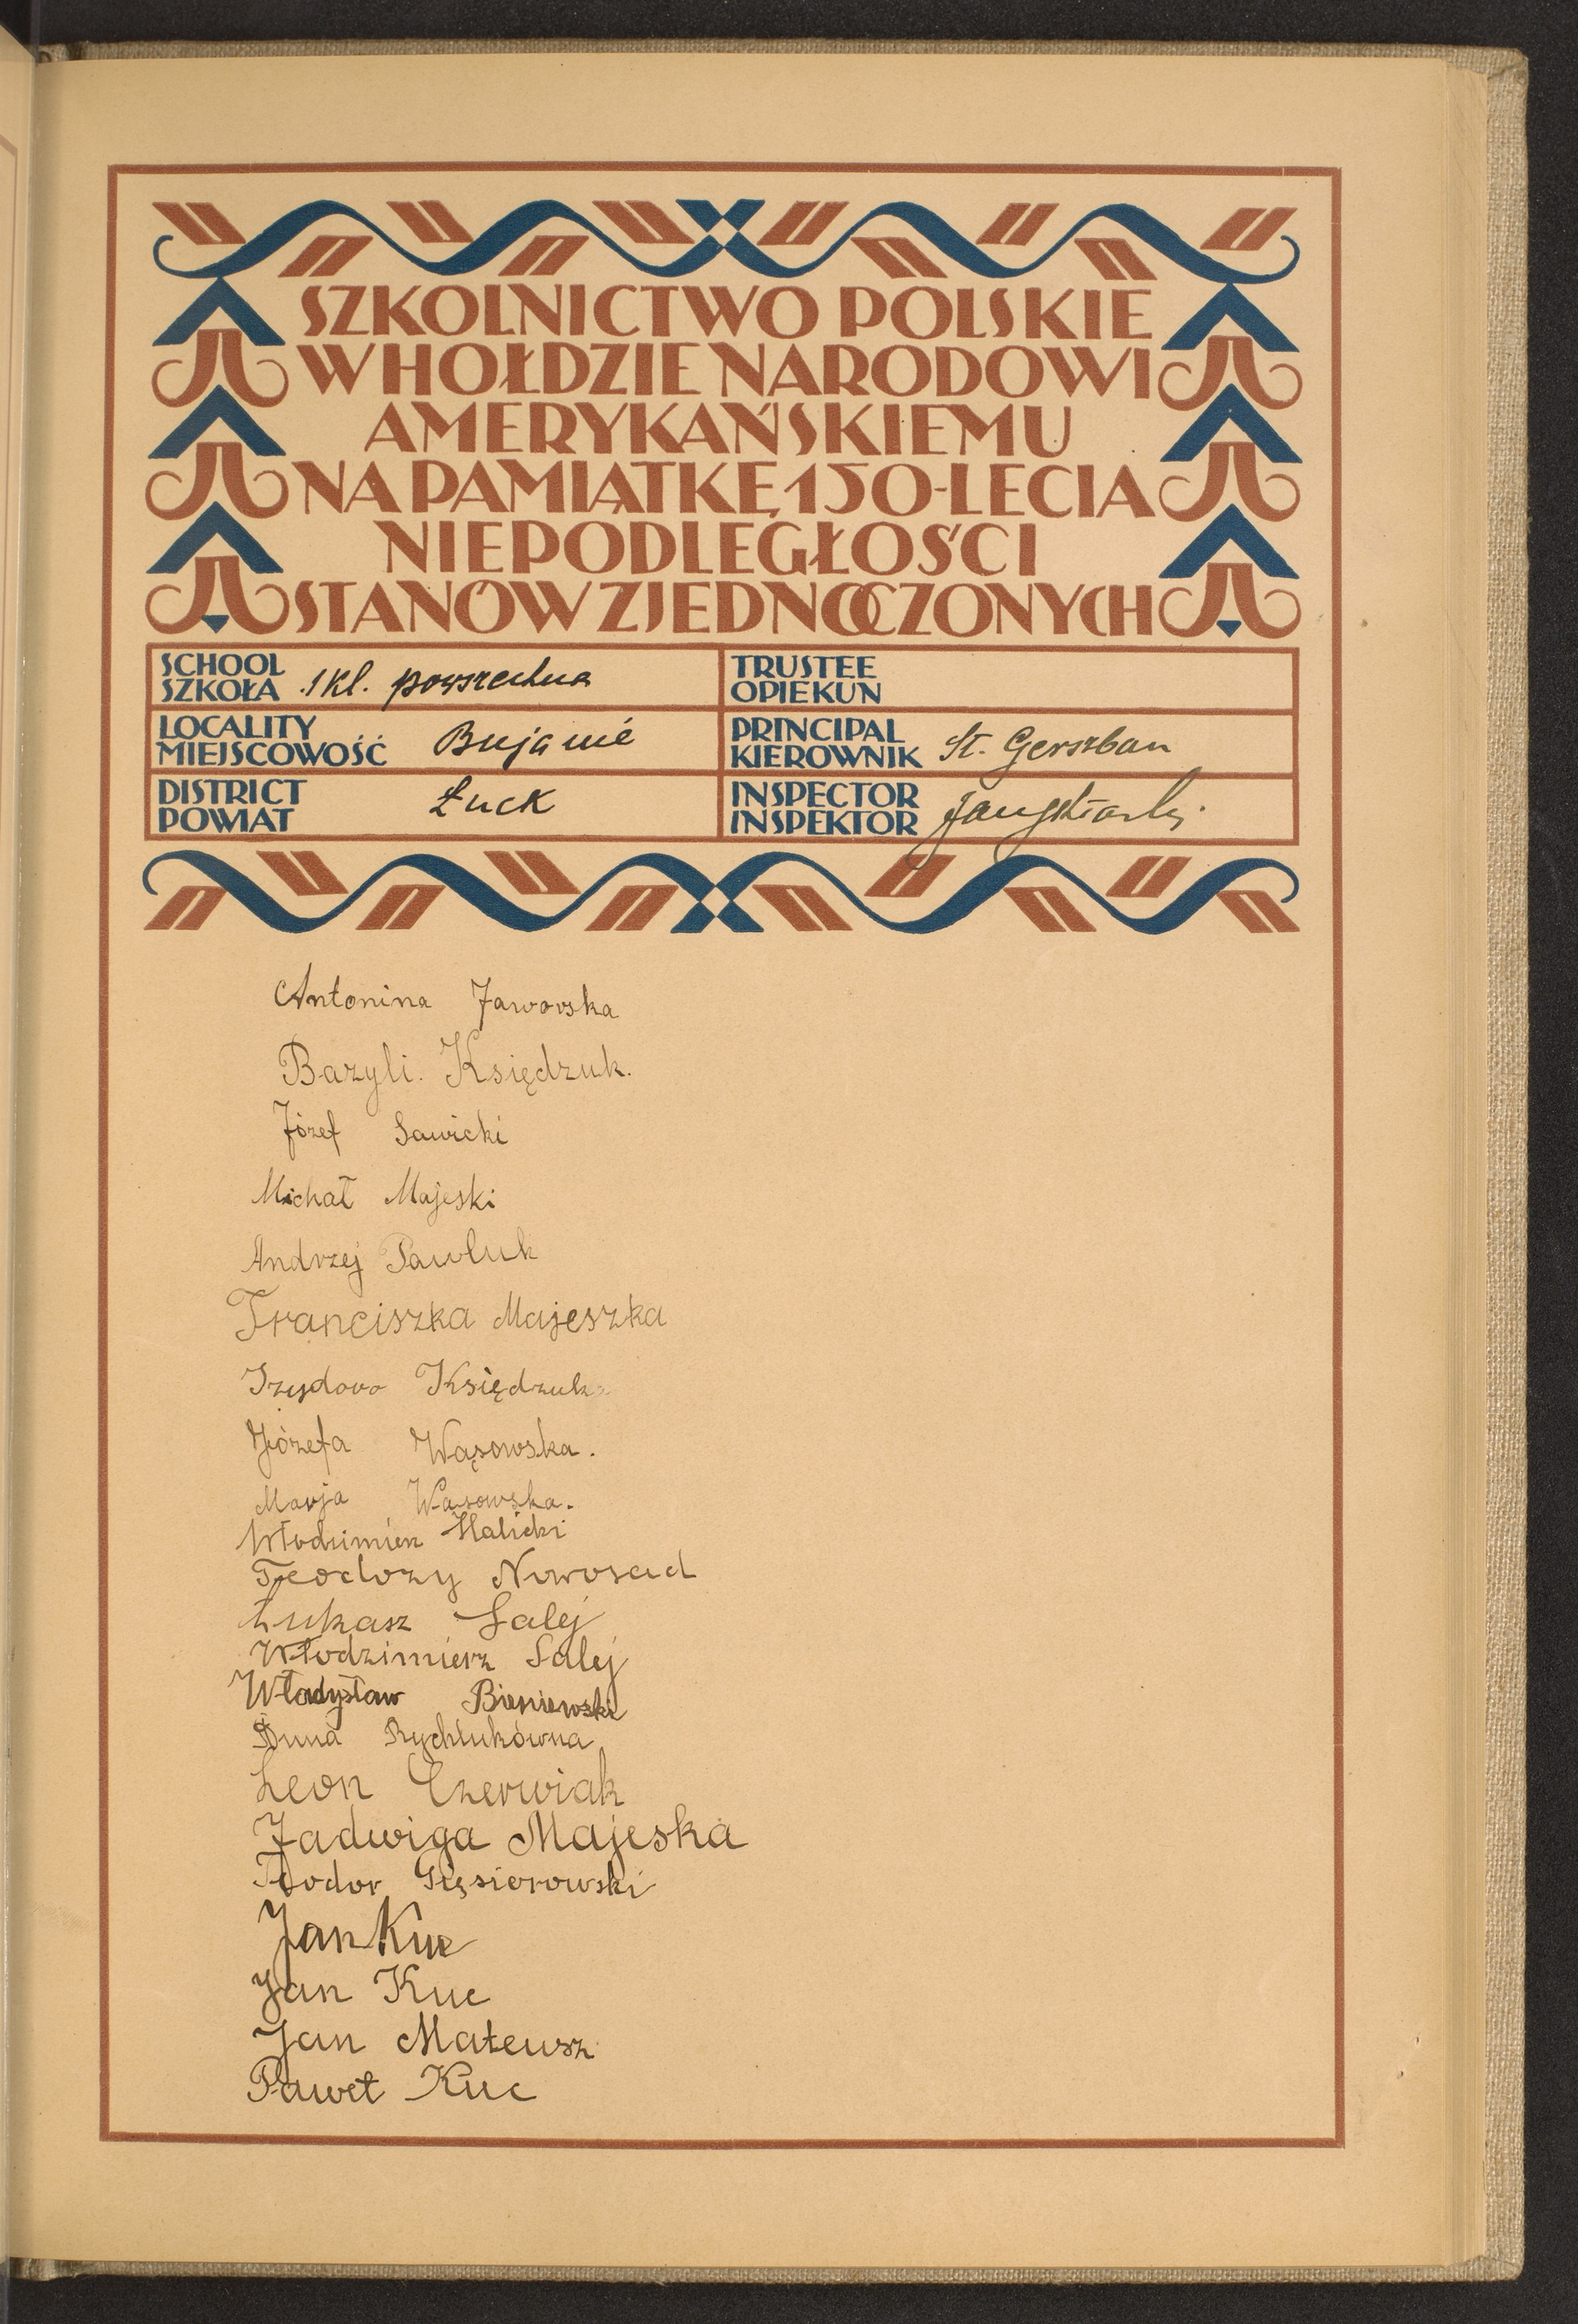 SZKOLNICTWO POLSKIE
W HOŁDZIE NARODOWI
AMERYKAŃSKIEMU
NA PAMIĄTKĘ 150-LECIA
NIEPODLEGŁOŚCI
STANÓW ZJEDNOCZONYCH
SCHOOL
SZKOŁA 1 kl. powszechna
TRUSTEE
OPIEKUN
LOCALITY
MIEJSCOWOŚĆ Bujanie
PRINCIPAL
KIEROWNIK St. Gerszban
DISTRICT
POWIAT Łuck
INSPECTOR
INSPEKTOR
Antonina Jaworska
Bazyli. Księdzuk.
Józef Sawicki
Michał Majeski
Andrzej Pawluk
Franciszka Majeszka
Izydoro Księdzuk
Józefa Wąsowska.
Marja Wasowska.
Włodzimierz Halicki
Teodozy Nowosad
Łukasz Salej
Włodzimierz Salej
Władysław Bieniewski
Anna Rychlukówna
Leon Czerwiak
Jadwiga Majeska
Teodor Gięsiorowski
Jan Kuc
Jan Kuc
Jan Mateusz
Paweł Kuc